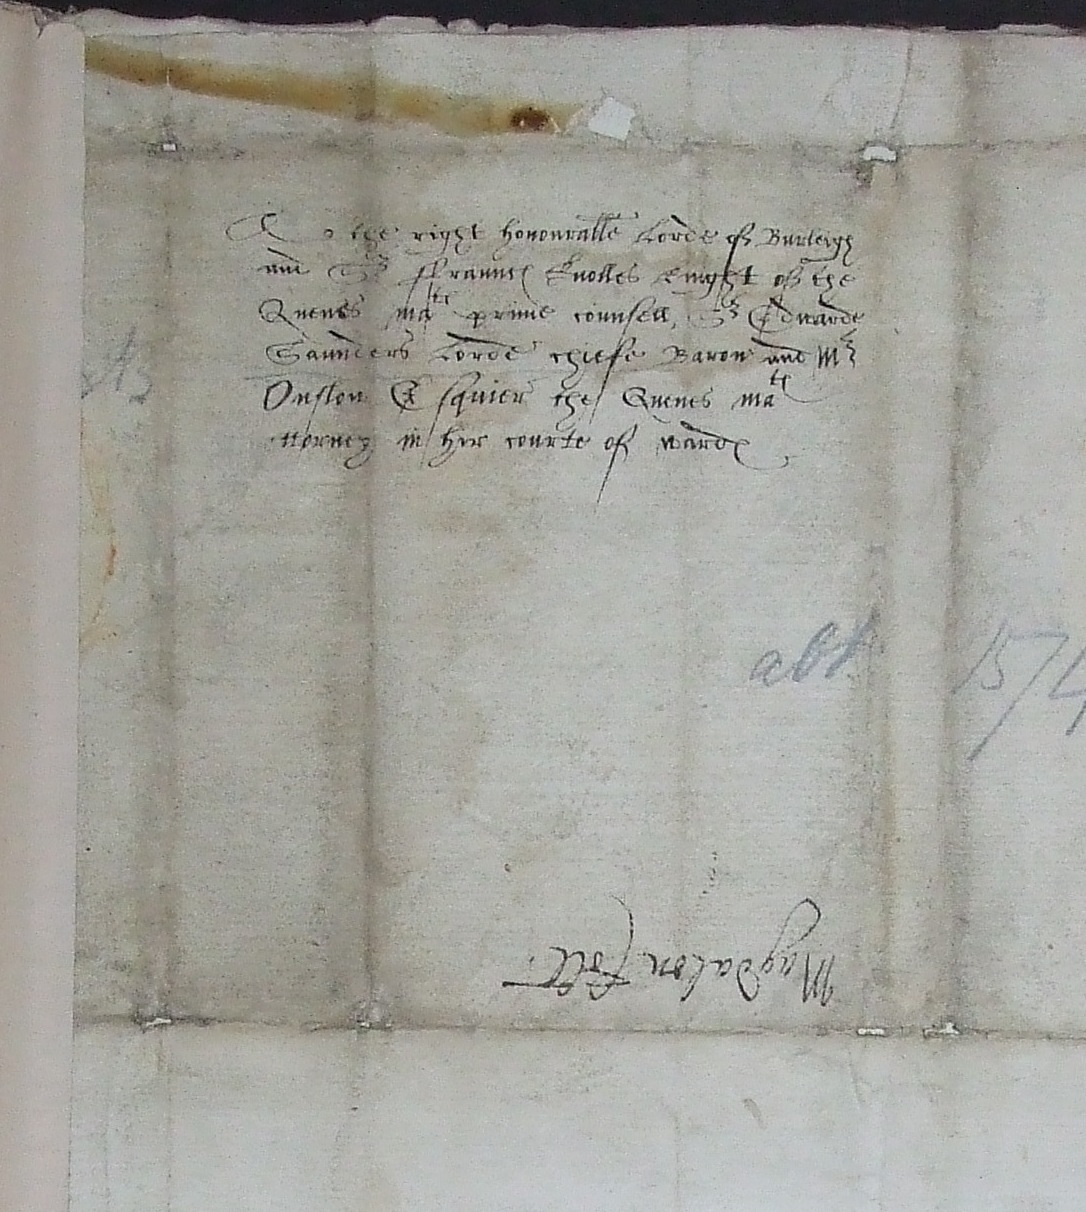 To the right honourable Lorde of Burleigh
and Sr ffraunces Knolles knight of the
Quenes matie privie counsell, Sr Edwarde
Saunders Lorde chiefe Baron and Mr
Onslow Esquier the Quenes matie
attorney in her courte of wardes
abt. 1574
Magdalen Colt